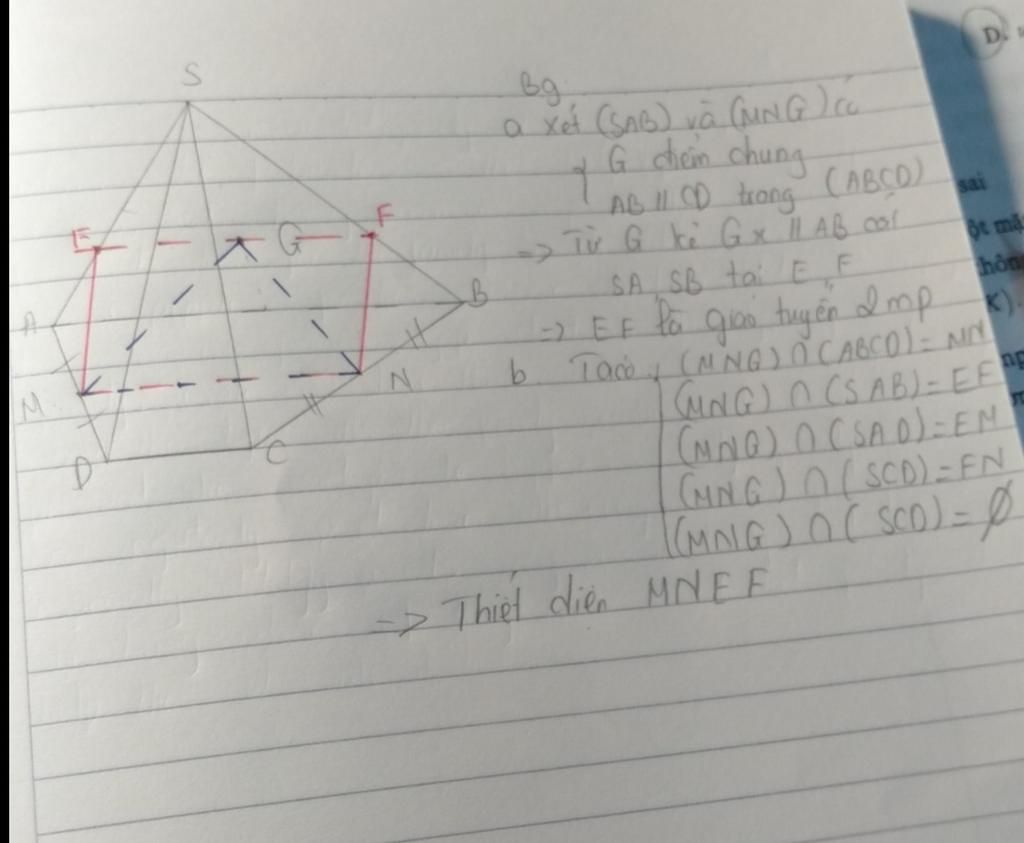 S
E
F
G
A
B
M
N
D
C
Bg
a xét (SAB) và (MNG) có
{ G điểm chung
AB // CD trong (ABCD)
=> Từ G kẻ Gx // AB cắt
SA, SB tại E, F
=> EF là giao tuyến 2mp
b. Ta có, (MNG) ∩ (ABCD) = MN
(MNG) ∩ (SAB) = EF
(MNG) ∩ (SAD) = EM
(MNG) ∩ (SCD) = FN
(MNG) ∩ (SCD) = Ø
=> Thiết diện MNEF
D.
sai
ộc mặ
K).